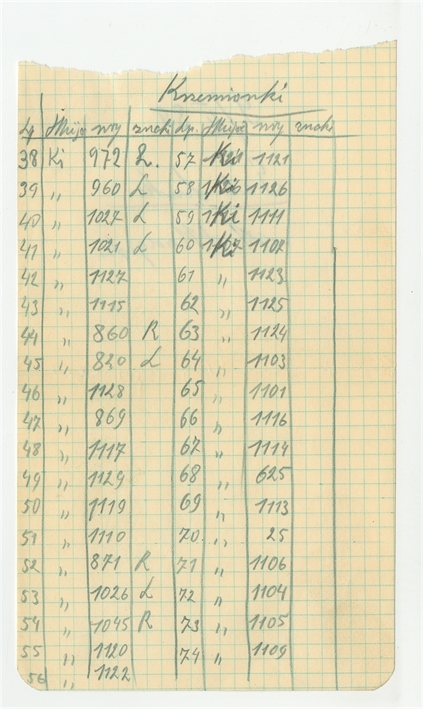 Krzemionki
Lp nry znaki Lp. nry znaki
38 Ki 972 L. 57 Ki 1121
39 " 960 L 58 Ki 1126
40 " 1027 L 59 Ki 1111
41 " 1021 L 60 Ki 1107
42 " 1127 61 " 1123
43 " 1115 62 " 1125
44 " 860 R 63 " 1124
45 " 820 L 64 " 1103
46 " 1128 65 " 1101
47 " 869 66 " 1116
48 " 1117 67 " 1114
49 " 1129 68 " 625
50 " 1119 69 " 1113
51 " 1110 70. " 25
52 " 871 R 71 " 1106
53 " 1026 L 72 " 1104
54 " 1045 R 73 " 1105
55 " 1120 74 " 1109
56 " 1122